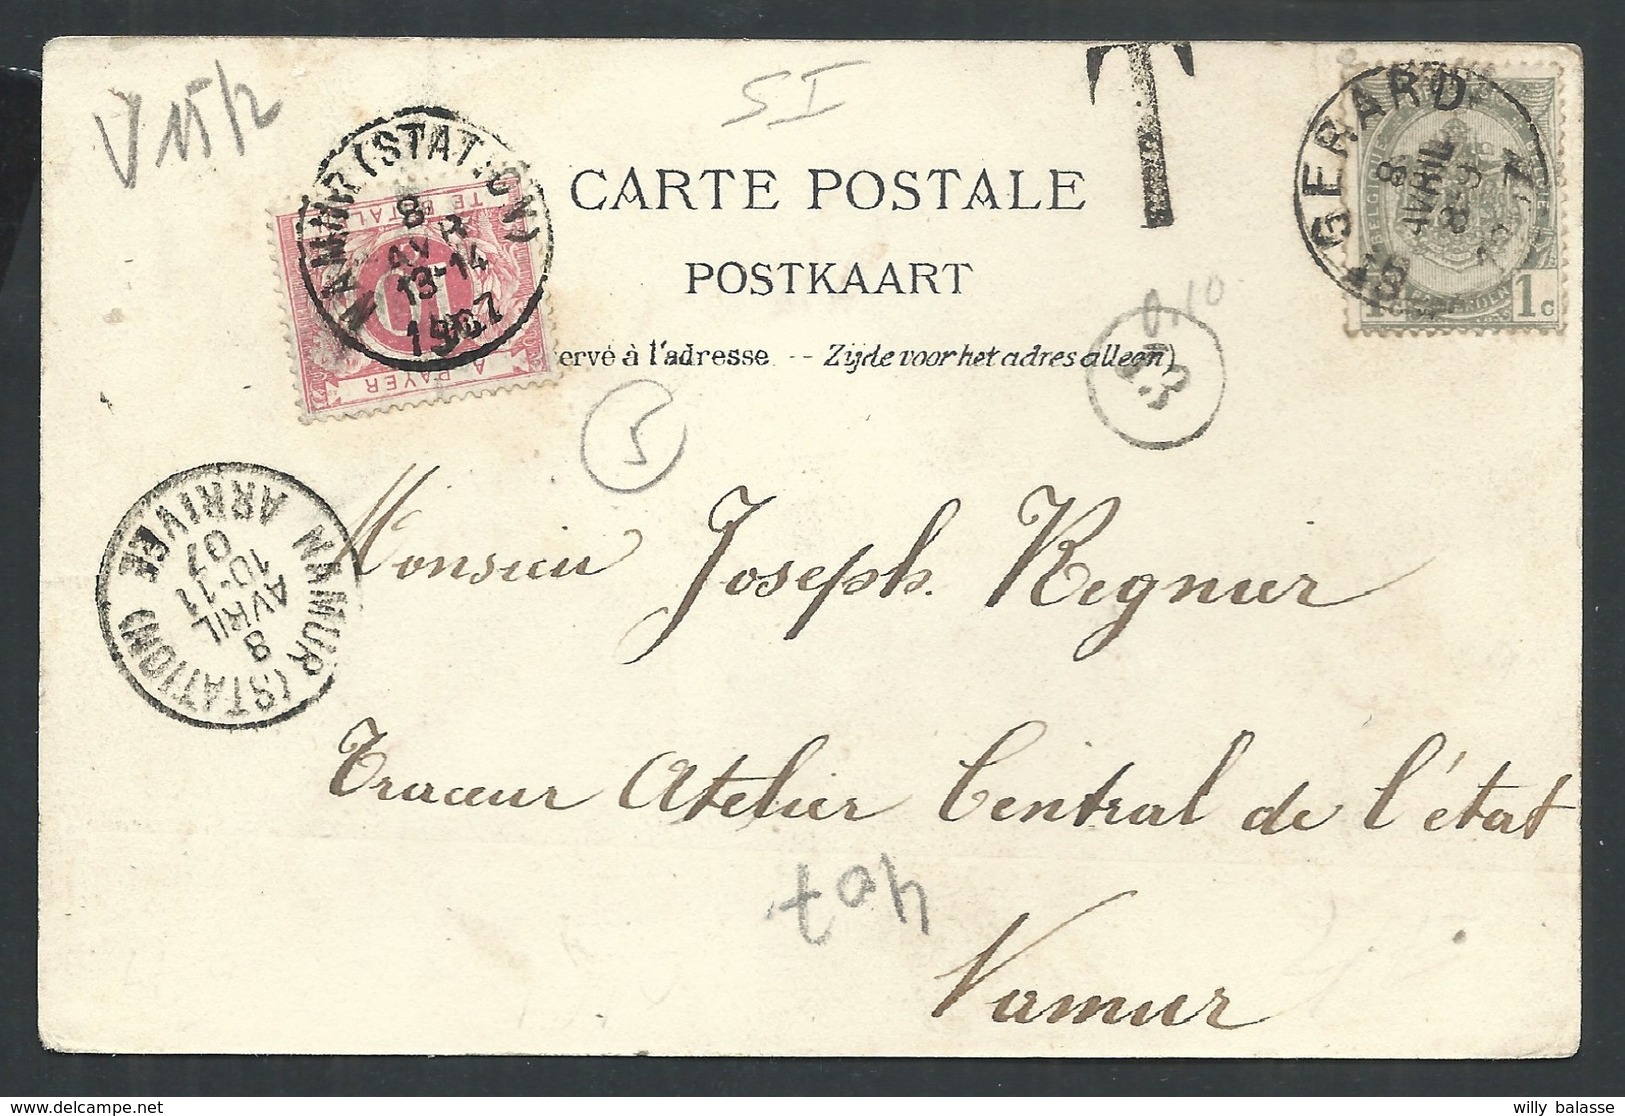 V 15/2
5 I
T
CARTE POSTALE
POSTKAART
ervé à l'adresse -- Zijde voor het adres alleen)
NAMUR (STATION)
8
AVR
13-14
1907
TE BETALEN
10
A PAYER
GERARD
8
AVRIL
8-9
1907
ST
1c
0.10
5
NAMUR (STATION)
8
AVRIL
10-11
07
ARRIVEE
Monsieur Joseph Regnier
Traceur Atelier Central de l'état
Namur
407
willy balasse